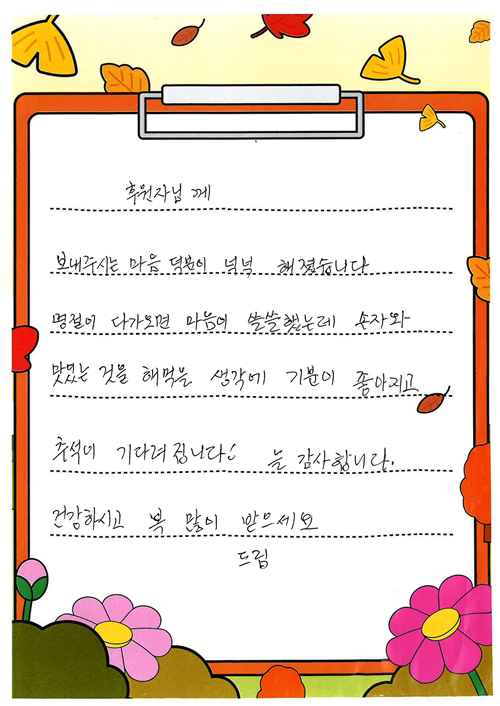 후원자님 께
보내주시는 마음 덕분이 넉넉 해졌습니다
명절이 다가오면 마음이 쓸쓸했는데 손자와
맛있는 것을 해먹을 생각에 기분이 좋아지고
추석이 기다려집니다! 늘 감사합니다.
건강하시고 복 많이 받으세요
드림